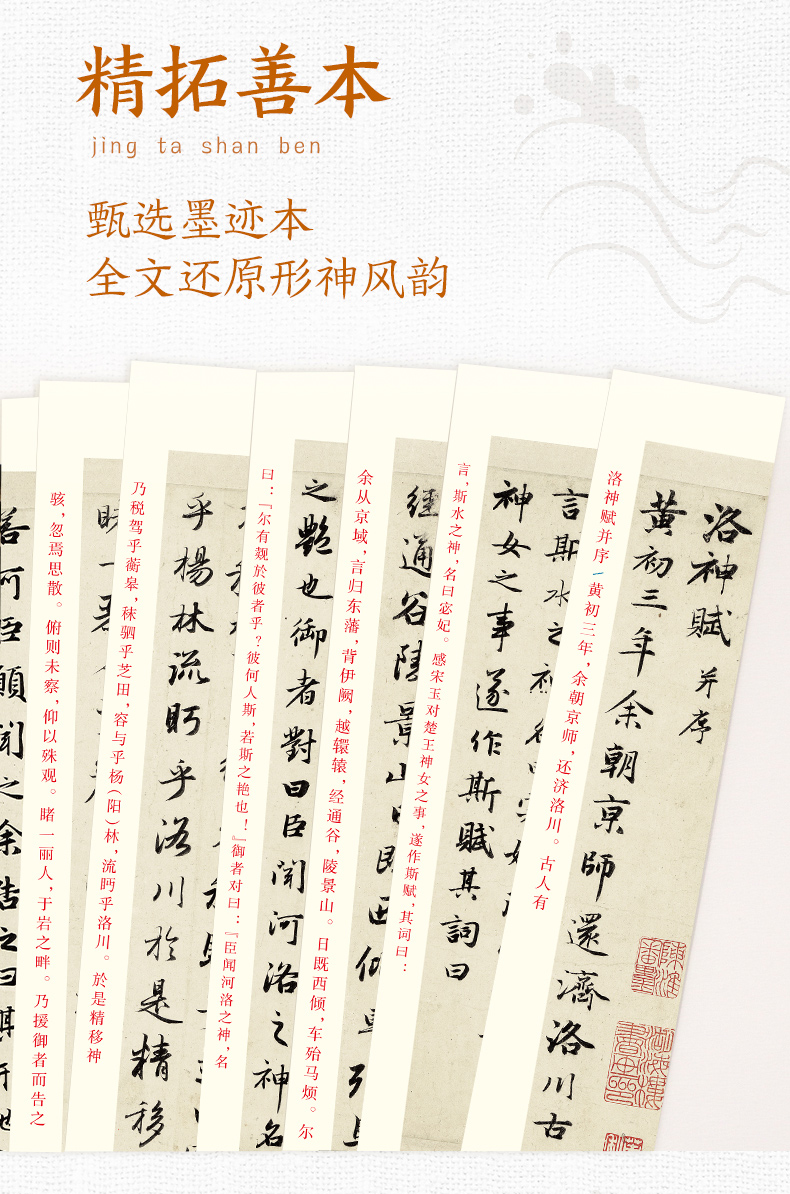 精拓善本
jing ta shan ben
甄选墨迹本
全文还原形神风韵
洛神賦 并序
黄初三年余朝京師還濟洛川古
洛神赋并序 黄初三年，余朝京师，还济洛川。古人有
言斯水之神名曰宓妃
神女之事遂作斯賦其詞曰
言，斯水之神，名曰宓妃。感宋玉对楚王神女之事，遂作斯赋，其词曰：
經通谷陵景山日既西傾車殆馬
余从京域，言归东藩，背伊阙，越轘辕，经通谷，陵景山。日既西倾，车殆马烦。尔
之艷也御者對曰臣聞河洛之神名
曰：『尔有觌於彼者乎？彼何人斯，若斯之艳也！』御者对曰：『臣闻河洛之神，名
乎楊林流眄乎洛川於是精移
乃税驾乎蘅皋，秣驷乎芝田，容与乎杨（阳）林，流眄乎洛川。於是精移神
睹一麗
骇，忽焉思散。俯则未察，仰以殊观。睹一丽人，于岩之畔。乃援御者而告之
若何臣願聞之余告之曰其形也